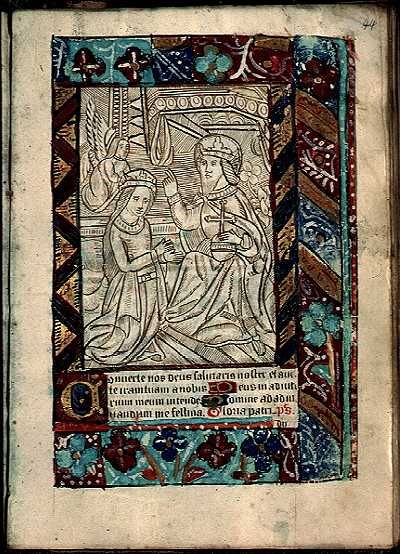 44
Conuerte nos deus salutaris noster et auer
te iram tuam a nobis Deus in adiuto
rium meum intende Domine ad adiu
uandum me festina. Gloria patri. ps.